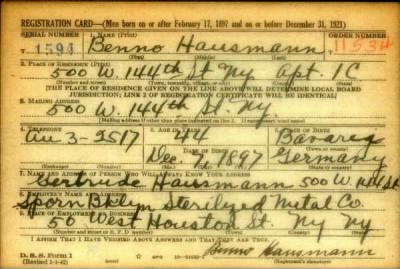 REGISTRATION CARD—(Men born on or after February 17, 1897 and on or before December 31, 1921)
SERIAL NUMBER 1. NAME (Print) ORDER NUMBER
T 1594 Benno Hausmann 11534
(First) (Middle) (Last)
2. PLACE OF RESIDENCE (Print)
500 W. 144th St Ny Apt. 1C
(Number and street) (Town, township, village, or city) (County) (State)
[THE PLACE OF RESIDENCE GIVEN ON THE LINE ABOVE WILL DETERMINE LOCAL BOARD
JURISDICTION; LINE 2 OF REGISTRATION CERTIFICATE WILL BE IDENTICAL]
3. MAILING ADDRESS
500 W. 144th St. Ny
[Mailing address if other than place indicated on line 2. If same insert word same]
4. TELEPHONE 5. AGE IN YEARS 6. PLACE OF BIRTH
Au 3-2517 44 Bavaria
DATE OF BIRTH (Town or county)
Dec. 7, 1897 Germany
(Exchange) (Number) (Mo.) (Day) (Yr.) (State or country)
7. NAME AND ADDRESS OF PERSON WHO WILL ALWAYS KNOW YOUR ADDRESS
Hausmann 500 W. 144 St
8. EMPLOYER'S NAME AND ADDRESS
Sporn Bklyn Sterilized Metal Co.
9. PLACE OF EMPLOYMENT OR BUSINESS
50 West Houston St. Ny Ny
(Number and street or R. F. D. number) (Town) (County) (State)
I AFFIRM THAT I HAVE VERIFIED ABOVE ANSWERS AND THAT THEY ARE TRUE.
D. S. S. Form 1
(Revised 1-1-42) Benno Hausmann